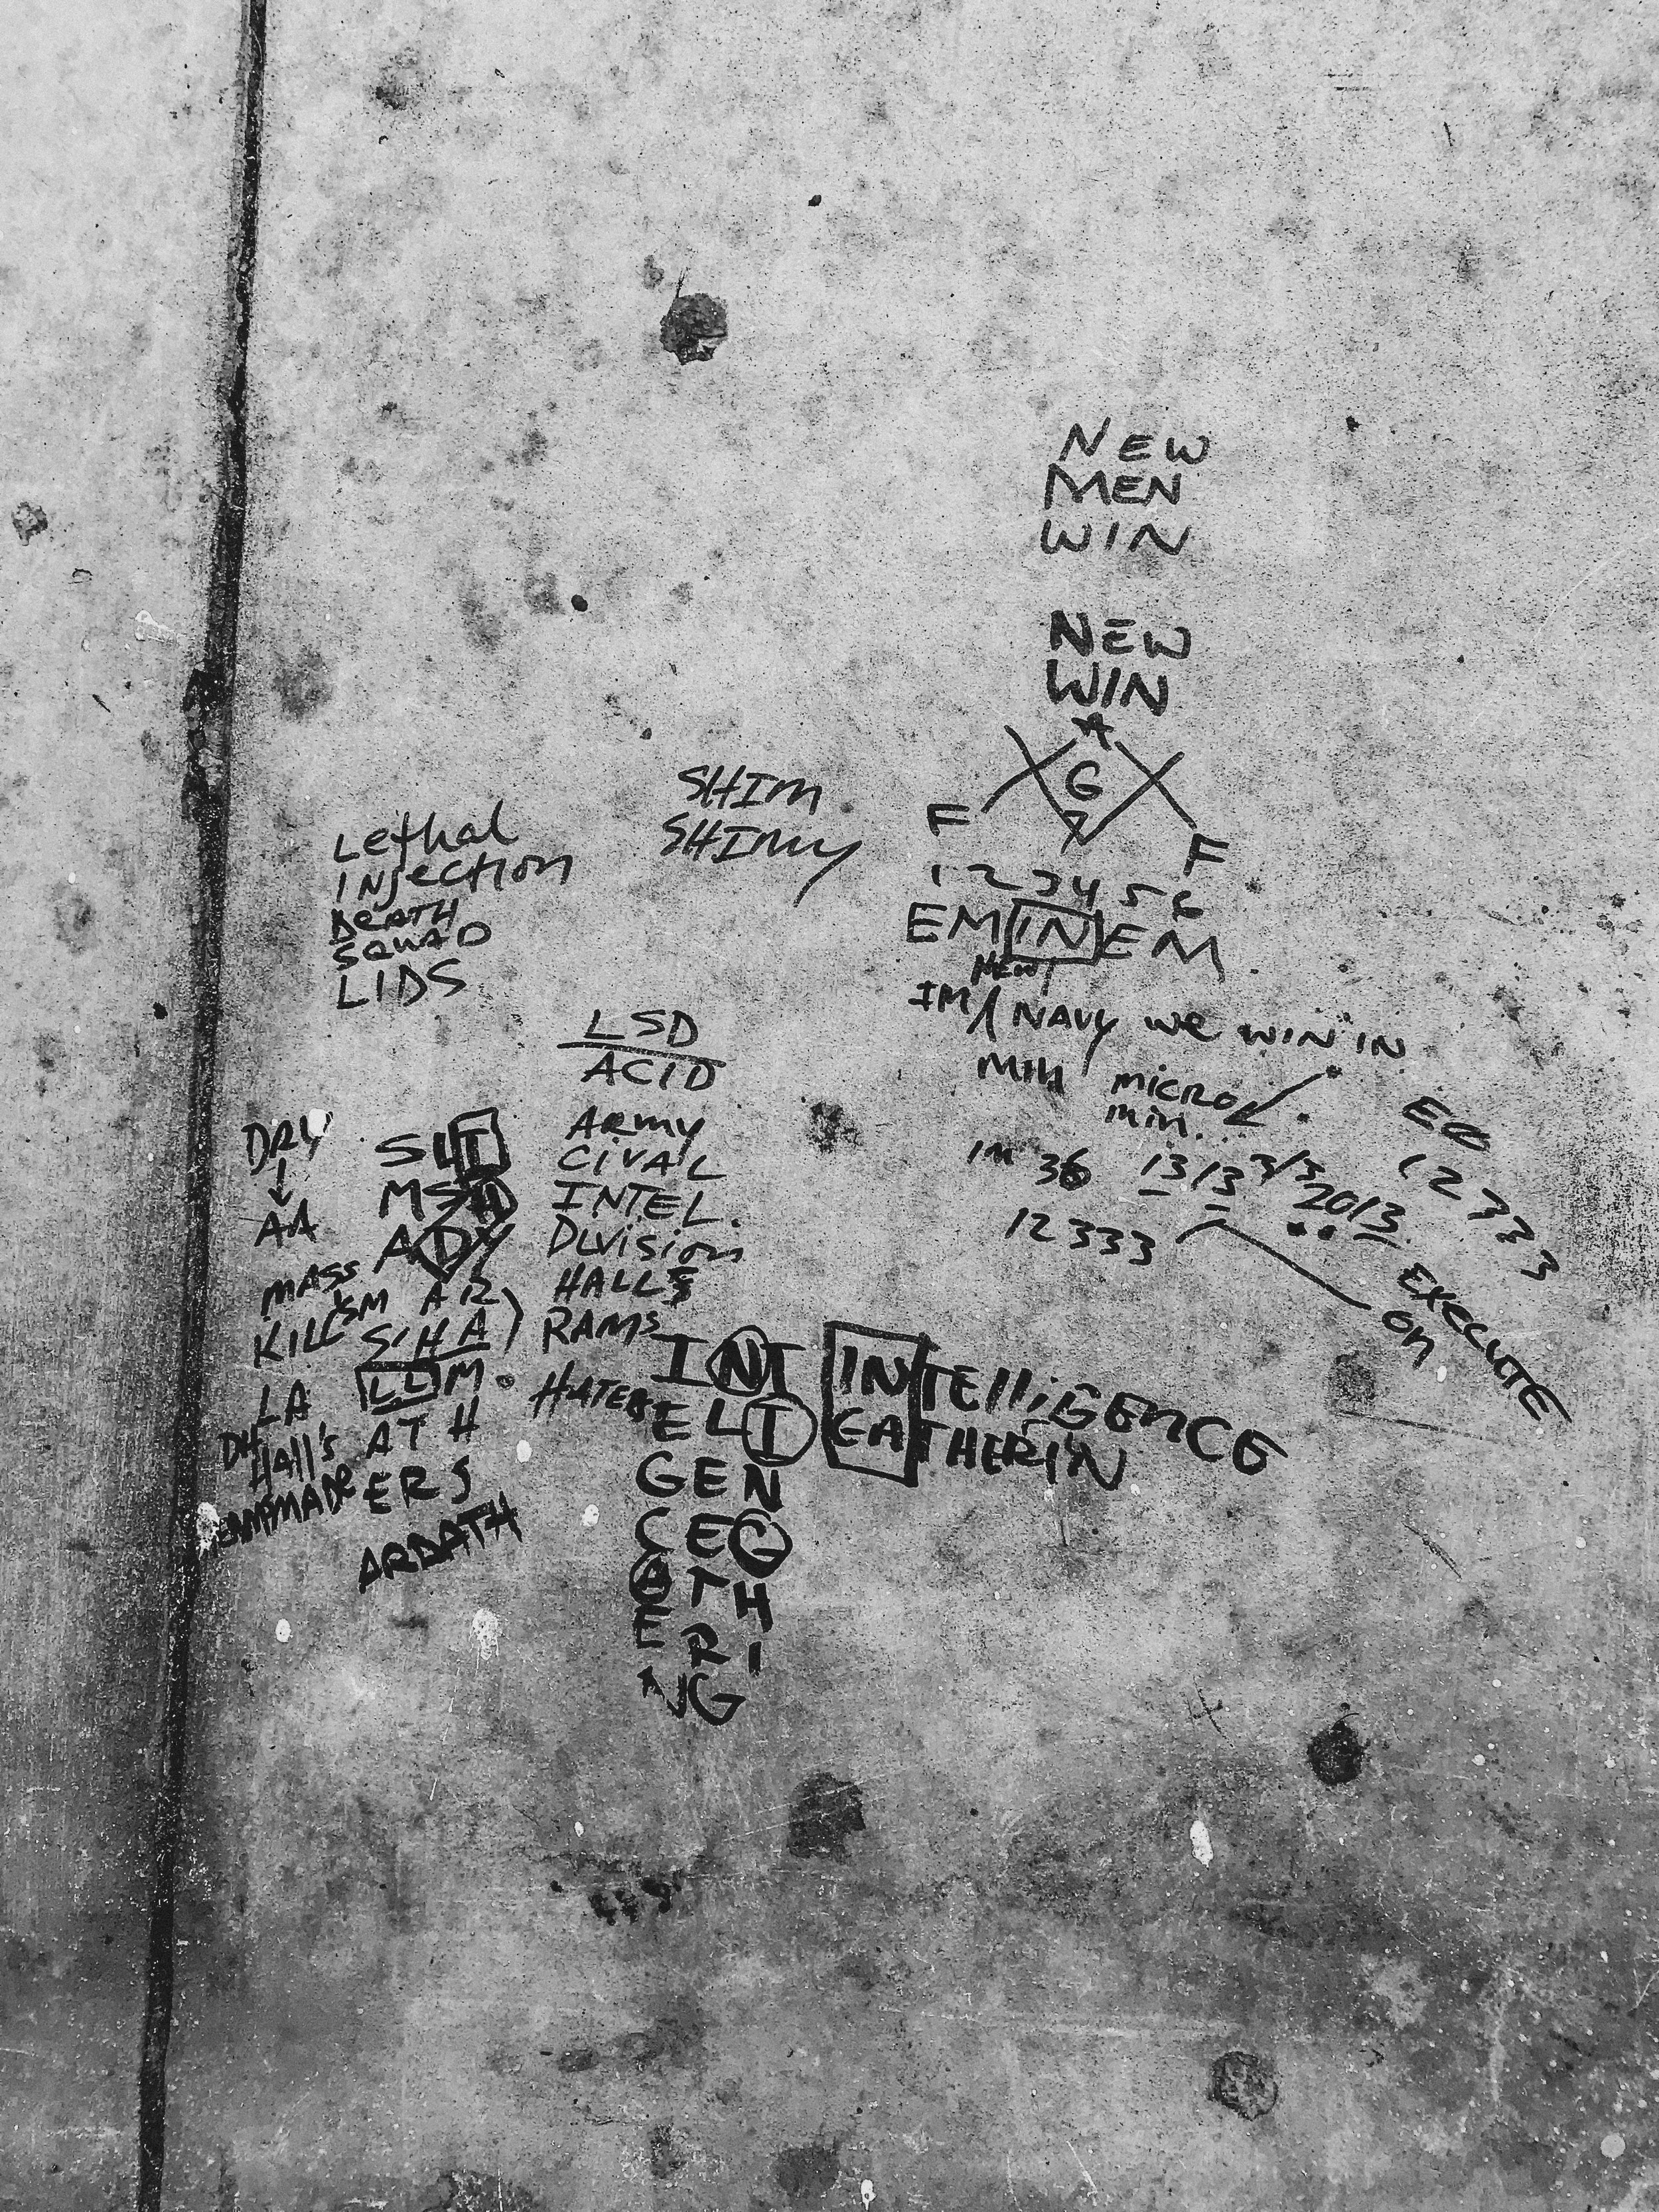 NEW
MEN
WIN
NEW
WIN
A
G
F F
1 2 3 4 5 6
EMINEM
NEW
IM NAVY WE WIN IN
MIN MICRO
MIN.
IN 36 1313 3/3 2013
12333
EQ
12333
EXECUTE
ON
SHIM
SHIMMY
Lethal
INjection
DEATH
SQUAD
LIDS
LSD
ACID
ARMY
CIVAL
INTEL.
DIVISION
HALLS
RAMS
HATERS
DRY
AA
MASS
KILL
LA
DH
HALL'S
SLIT
MS
ADY
SM AR
SIHA
LLM.
ATH
ERS
ARDATH
INT
ELI
GEN
CEG
ATH
ERI
NG
INTElliGENCE
GATHERIN